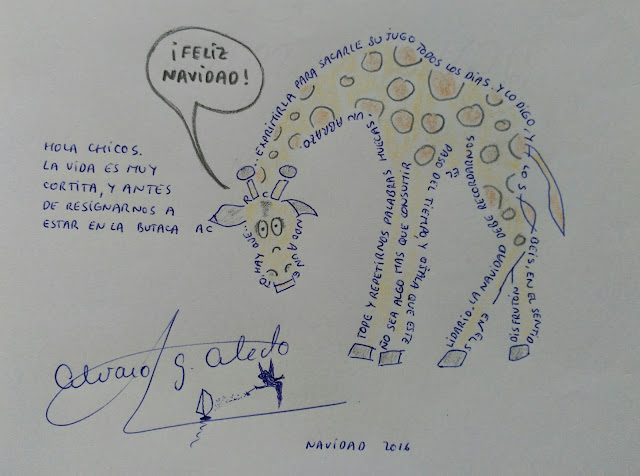 ¡FELIZ
NAVIDAD!
HOLA CHICOS.
LA VIDA ES MUY
CORTITA, Y ANTES
DE RESIGNARNOS A
ESTAR EN LA BUTACA AC
HAY QUE...
...EXPRIMIRLA PARA SACARLE SU JUGO TODOS LOS DÍAS. Y LO DIGO, Y LO S
BEIS, EN EL SENTIDO
DISFRUTÓN
EN EL S
LIDARIO. LA NAVIDAD DEBE RECORDARNOS
EL
PASO DEL TIEMPO, Y OJALÁ QUE ESTE
NO SEA ALGO MAS QUE CONSUMIR
TOPE Y REPETIRNOS PALABRAS HUECAS.
UN ABRAZO
Alvaro G. Aledo
NAVIDAD 2016